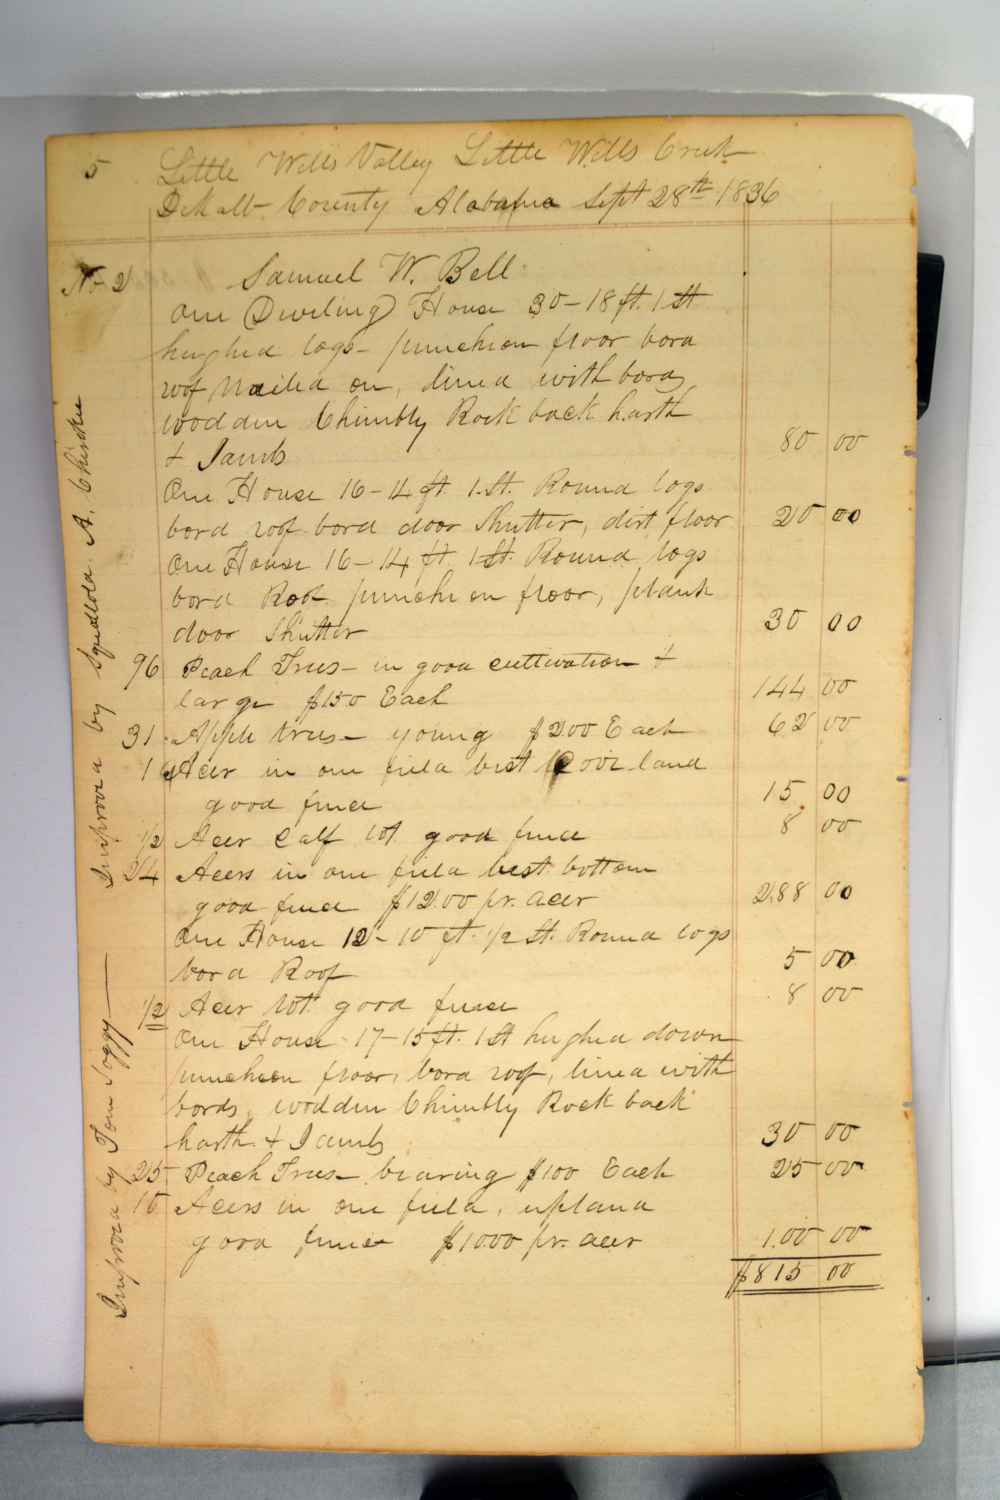 5 Little Wills Valley Little Wills Creek
DeKalb County Alabama Sept 28th 1836
No. 2 Samuel W. Bell
One Dweling House 30-18 ft. 1 St.
hughed logs - puncheon floor bord
roof Nailed on, lined with bords
wodden Chimbly Rock back harth
& Jambs 80 00
One House 16-14 ft. 1 St. Round logs
bord roof bord door Shutter, dirt floor 20 00
One House 16-14 ft 1 St. Round logs
bord Roof puncheon floor, plank
door Shutter 30 00
96 Peach Trees - in good cultivation &
large $150 Each 144 00
31 Apple trees - young $2.00 Each 62 00
1 Acer in one field best land
good fence 15 00
1/2 Acer Calf lot good fence 8 00
24 Acers in one field best bottom
good fence $12.00 pr. acer 288 00
One House 12-10 ft. 1/2 St. Round logs
bord Roof 5 00
1/2 Acer lot good fence 8 00
One House 17-15 ft. 1 St hughed down
puncheon floor, bord roof, lined with
bords, wodden Chimbly Rock back
harth & Jambs 30 00
25 Peach Trees - bearing $100 Each 25 00
10 Acers in one field, upland
good fence $10.00 pr. acer 1.00 00
$815 00
Improvd by A. Cherokee
Improvd by Tom